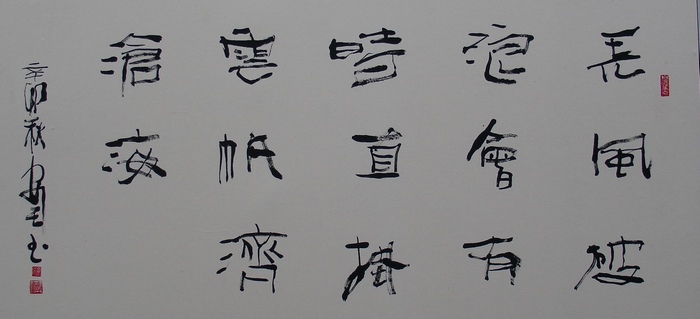 長風破
浪會有
時直掛
雲帆濟
滄海
辛卯秋